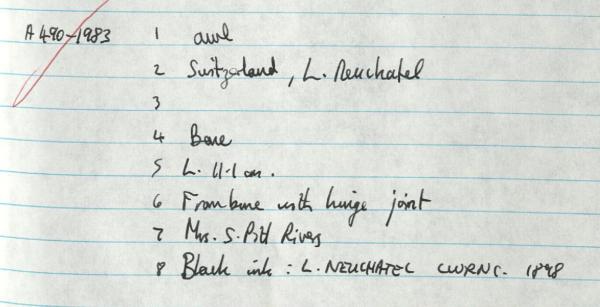 A490-1983 1 awl
2 Switzerland, L. Neuchatel
3
4 Bone
5 L. 11.1 cm.
6 From bone with hinge joint
7 Mrs. S. Pitt Rivers
8 Black ink : L. NEUCHATEL 1898